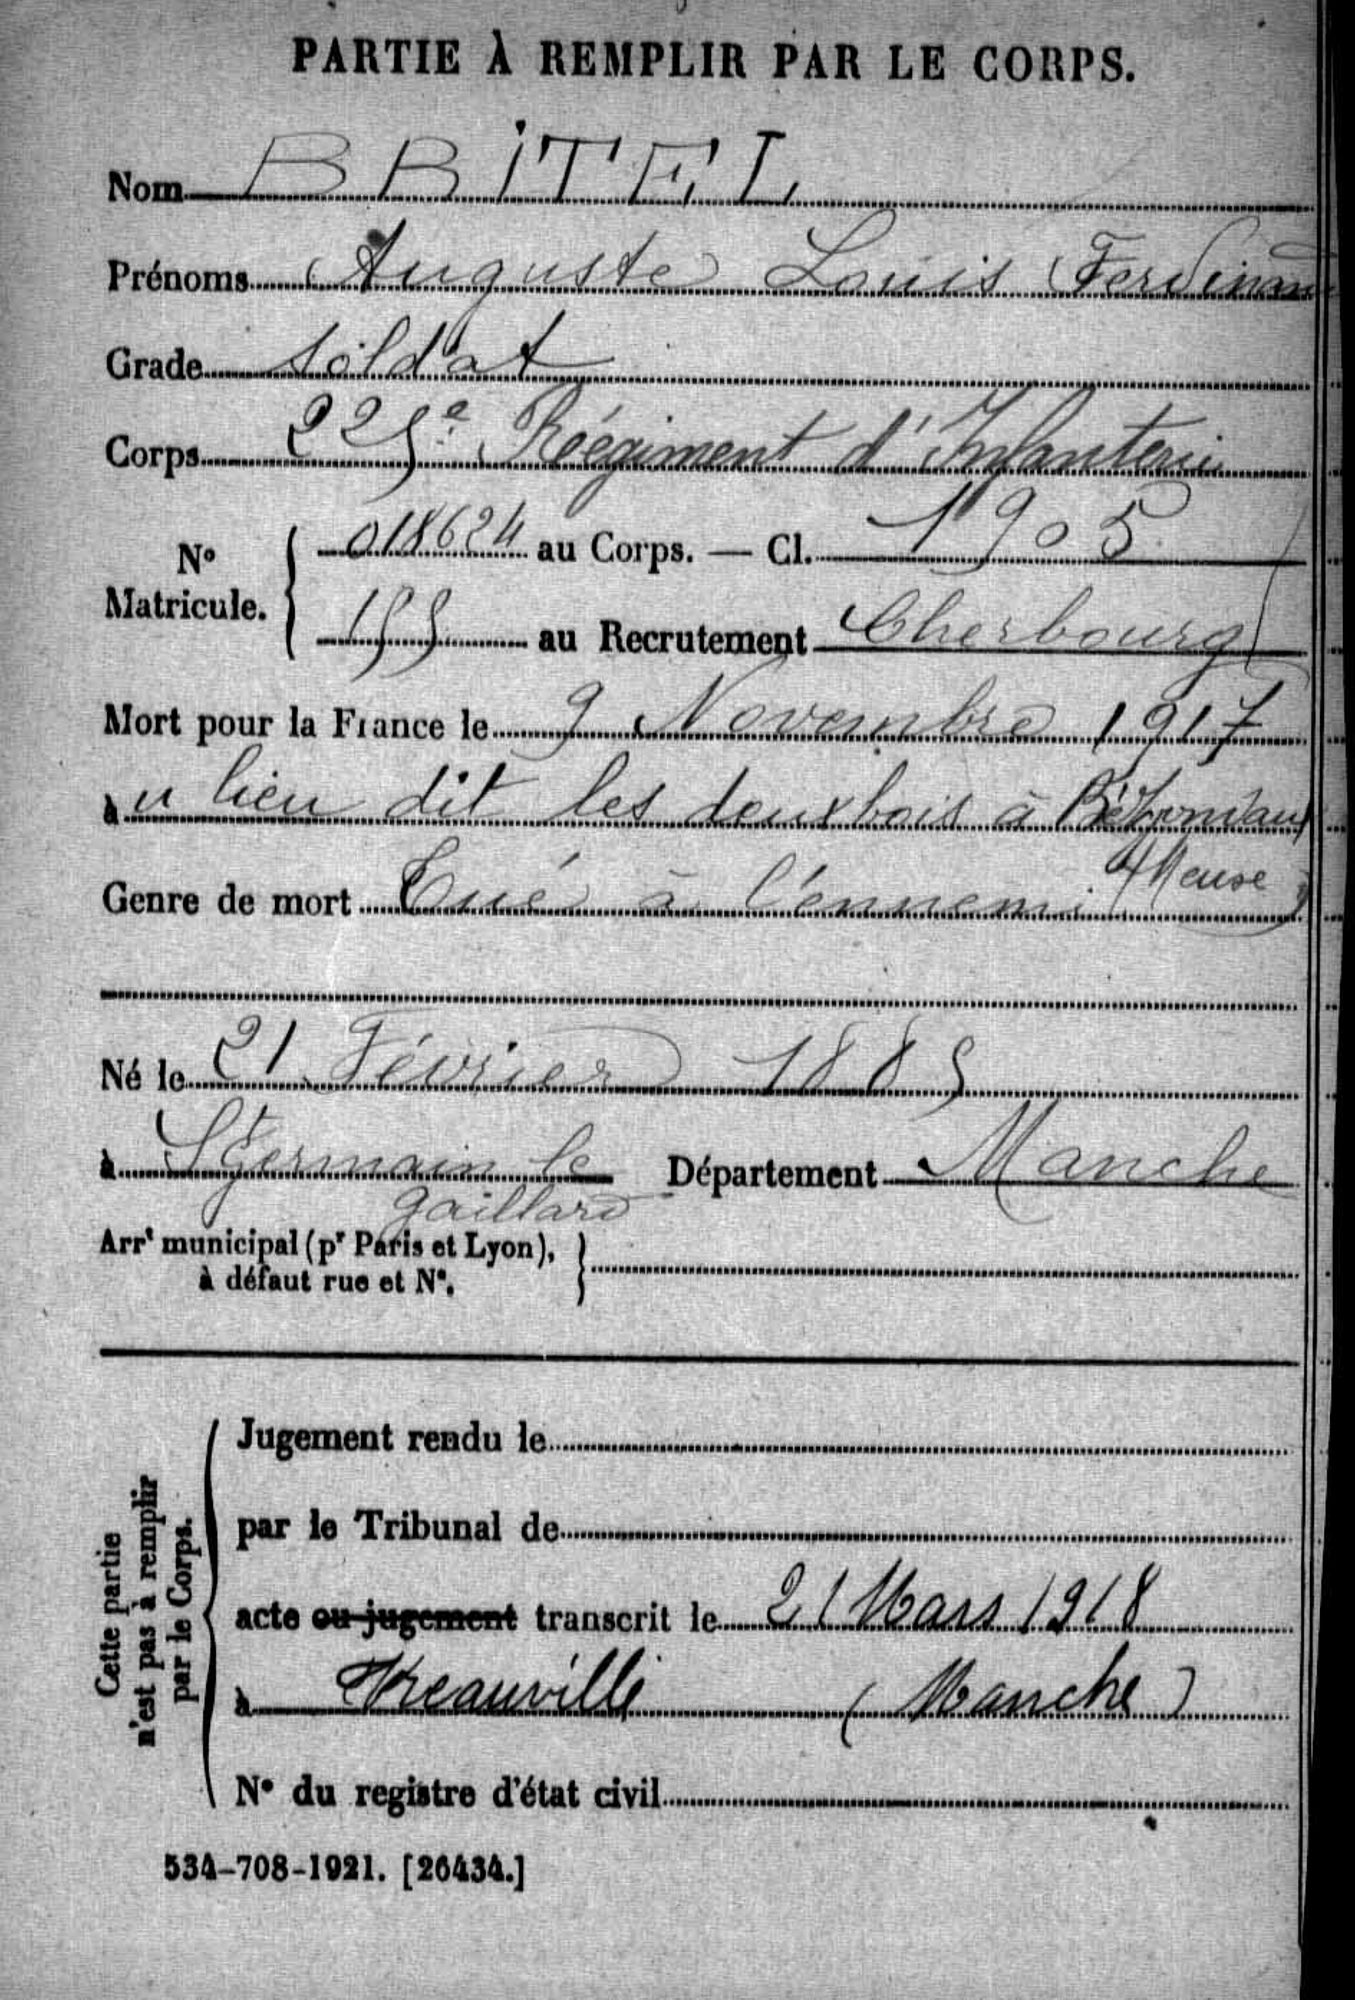 PARTIE À REMPLIR PAR LE CORPS.
Nom BRITEL
Prénoms Auguste Louis Ferdinand
Grade soldat
Corps 225e Régiment d'Infanterie
N° Matricule. 018624 au Corps. — Cl. 1905
155 au Recrutement Cherbourg
Mort pour la France le 9 Novembre 1917
à u lieu dit les deux bois à Bézonvaux
(Meuse)
Genre de mort Tué à l'ennemi
Né le 21 Février 1885
à St Germain le Département Manche
gaillard
Arrt municipal (pr Paris et Lyon),
à défaut rue et N°.
Cette partie
n'est pas à remplir
par le Corps.
Jugement rendu le
par le Tribunal de
acte ou jugement transcrit le 21 Mars 1918
à (Manche)
N° du registre d'état civil
534-708-1921. [26434.]